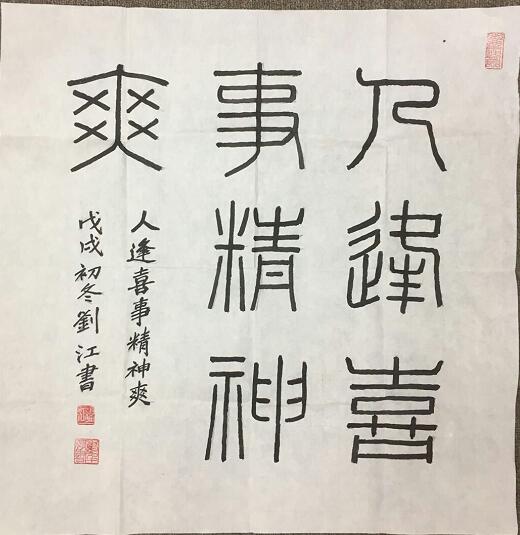 人逢喜
事精神
爽
人逢喜事精神爽
戊戌初冬劉江書